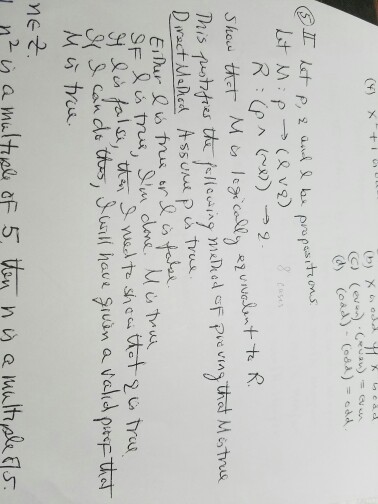 (4) x² + 1 is
(b) x is odd iff x is odd
(c) (even) · (even) = even
(d) (odd) · (odd) = odd.
⑤ II Let p, q and l be propositions
Let M : p → (l ∨ q)
R : (p ∧ (~l)) → q.
Show that M is logically equivalent to R.
This justifies the following method of proving that M is true
Direct Method Assume p is true.
Either l is true or l is false
If l is true, I'm done. M is true
If l is false, then I need to show that q is true.
If I can do this, I will have given a valid proof that
M is true.
n ∈ Z.
n² is a multiple of 5, then n is a multiple of 5.